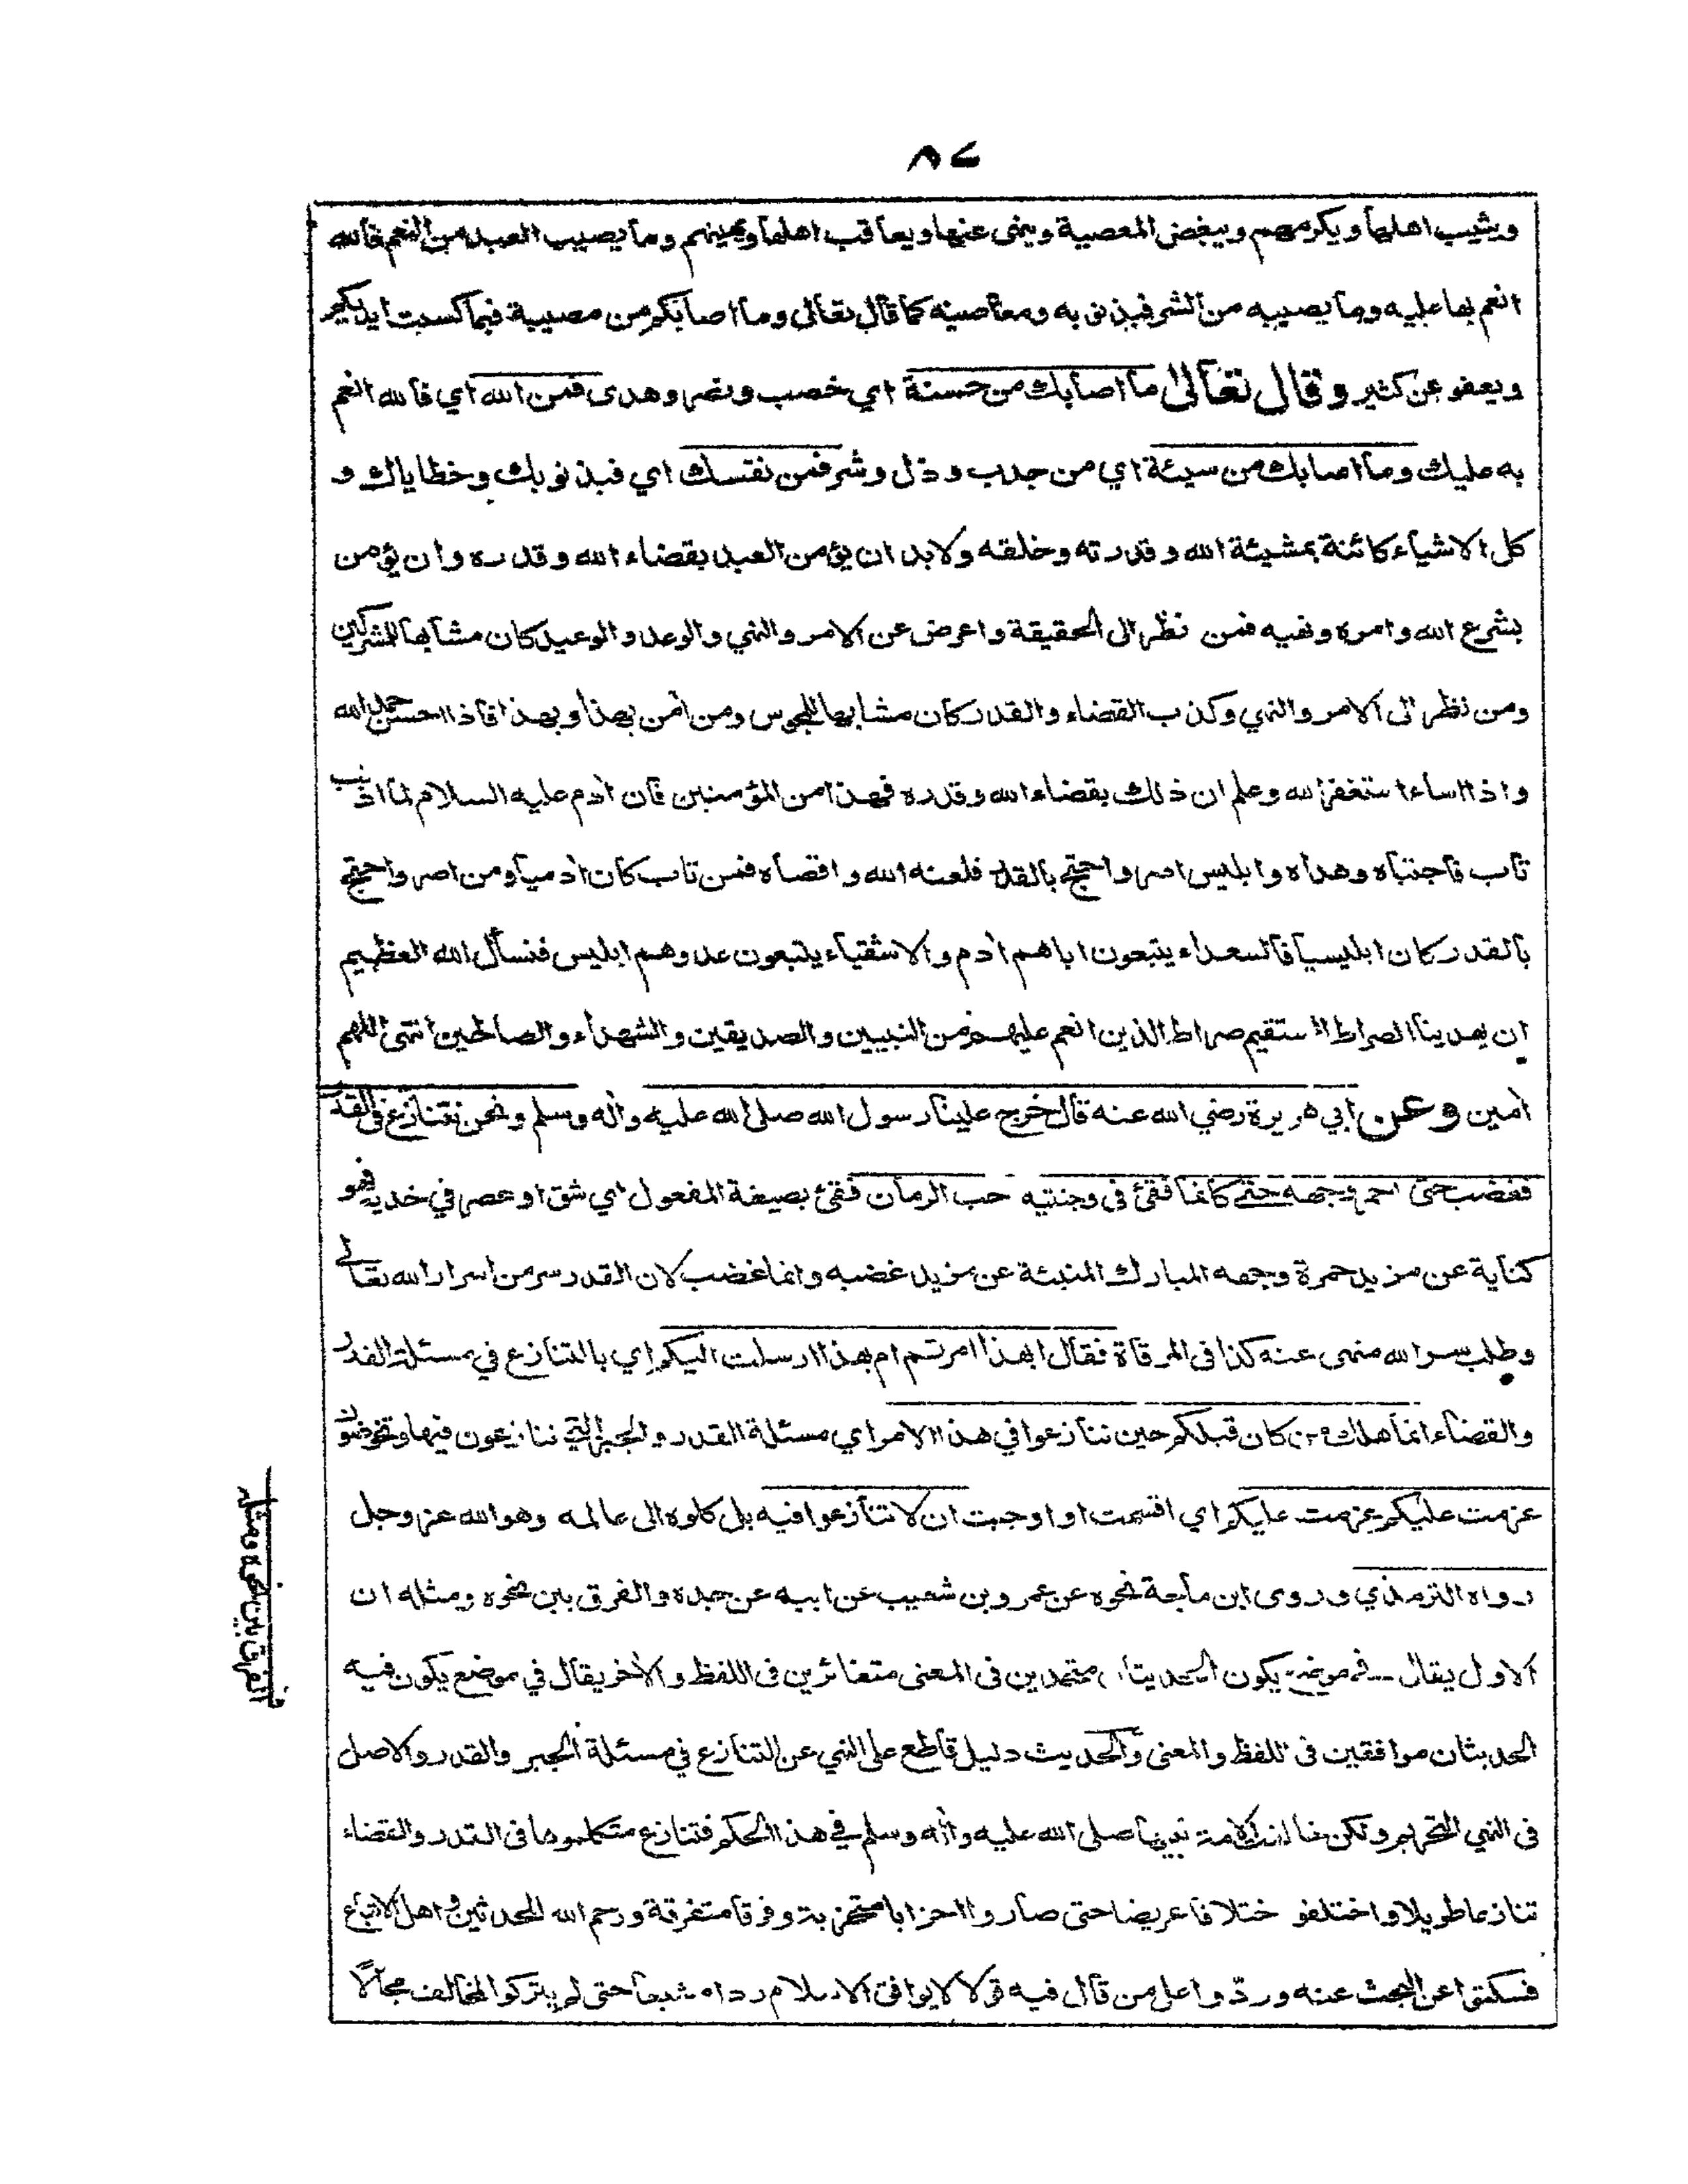 ٨٤
ويثيب اهلها ويكرمهم ويبغض المعصية وينهى عنها ويعاقب اهلها ويهينهم وما يصيب العبد من النعم فالله
انعم بها عليه وما يصيبه من الشر فبذنوبه ومعاصيه كما قال تعالى وما اصابكم من مصيبة فبما كسبت ايديكم
ويعفو عن كثير وقال تعالى ما اصابك من حسنة اي خصب ونصر وهدى فمن الله اي فالله انعم
به عليك وما اصابك من سيئة اي من جدب وذل وشر فمن نفسك اي فبذنوبك وخطاياك و
كل الاشياء كائنة بمشيئة الله وقدرته وخلقه ولا بد ان يؤمن العبد بقضاء الله وقدره وان يؤمن
بشرع الله وامره ونهيه فمن نظر الى الحقيقة واعرض عن الامر والنهي والوعد والوعيد كان مشابها للمشركين
ومن نظر الى الامر والنهي وكذب القضاء والقدر كان مشابها للمجوس ومن آمن بهذا وبهذا فاذا احسن حمد الله
واذا اساء استغفر الله وعلم ان ذلك بقضاء الله وقدره فهذا من المؤمنين فان آدم عليه السلام لما اذنب
تاب فاجتباه وهداه وابليس اصر واحتج بالقدر فلعنه الله واقصاه فمن تاب كان آدميا ومن اصر واحتج
بالقدر كان ابليسيا فالسعداء يتبعون اباهم آدم والاشقياء يتبعون عدوهم ابليس فنسأل الله العظيم
ان يهدينا الصراط المستقيم صراط الذين انعم عليهم من النبيين والصديقين والشهداء والصالحين انتهى اللهم
آمين وعن ابي هريرة رضي الله عنه قال خرج علينا رسول الله صلى الله عليه وآله وسلم ونحن نتنازع في القدر
فغضب حتى احمر وجهه حتى كانما فقئ في وجنتيه حب الرمان فقئ بصيغة المفعول اي شق او عصر في خديه فهو
كناية عن مزيد حمرة وجهه المبارك المنبئة عن مزيد غضبه وانما غضب لان القدر سر من اسرار الله تعالى
وطلب سر الله منهى عنه كذا في المرقاة فقال ابهذا امرتم ام بهذا ارسلت اليكم اي بالتنازع في مسئلة القدر
والقضاء انما هلك من كان قبلكم حين تنازعوا في هذا الامر اي مسئلة القدر والجبر التي تتنازعون فيها وتخوضون
عزمت عليكم عزمت عليكم اي اقسمت او اوجبت ان لا تتنازعوا فيه بل كلوه الى عالمه وهو الله عز وجل
رواه الترمذي وروى ابن ماجة نحوه عن عمرو بن شعيب عن ابيه عن جده والفرق بين نحوه ومثله ان
الاول يقال في موضع يكون الحديثان متحدين في المعنى متغائرين في اللفظ والآخر يقال في موضع يكون فيه
الحديثان موافقين في اللفظ والمعنى والحديث دليل قاطع على النهي عن التنازع في مسئلة الجبر والقدر والاصل
في النهي التحريم ولكن خالفت امة نبينا صلى الله عليه وآله وسلم في هذا الحكم فتنازع متكلموها في القدر والقضاء
تنازعا طويلا واختلفوا اختلافا عريضا حتى صاروا احزابا متحزبة وفرقا متفرقة ورحم الله المحدثين واهل الاتباع
فسكتوا عن البحث عنه وردّوا على من قال فيه قولا لا يوافق الاسلام ردا مشبعا حتى لم يتركوا لمخالف مجالاً
الفرق بين نحوه ومثله